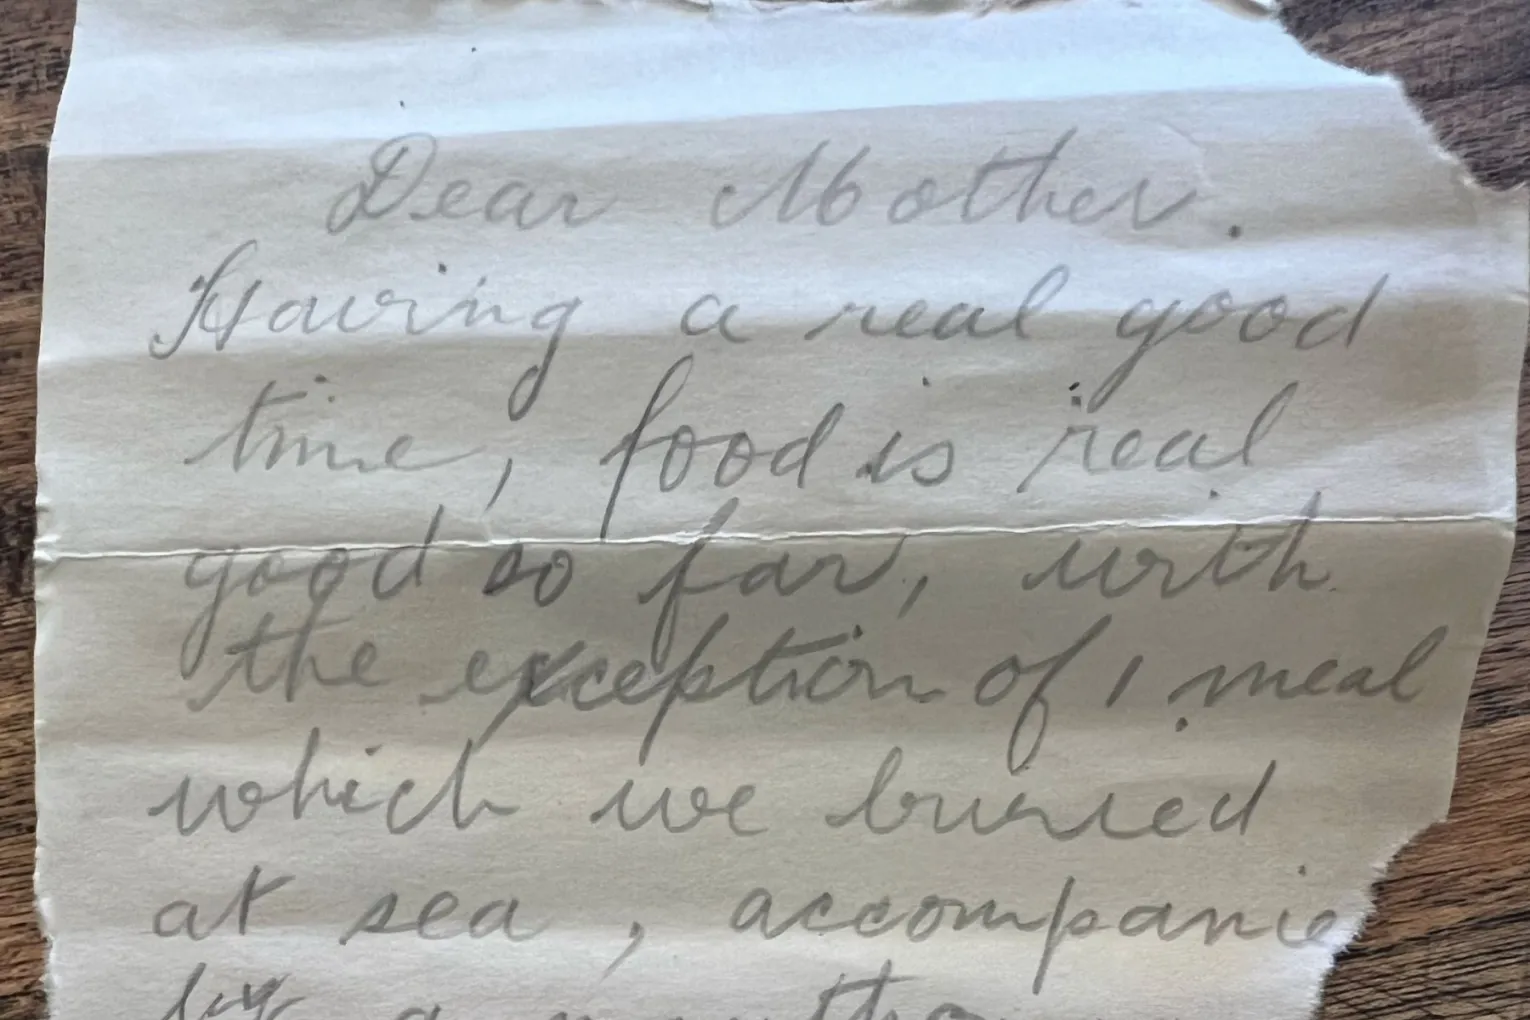 Dear Mother.
Having a real good
time, food is real
good so far, with
the exception of 1 meal
which we buried
at sea, accompanie
by a